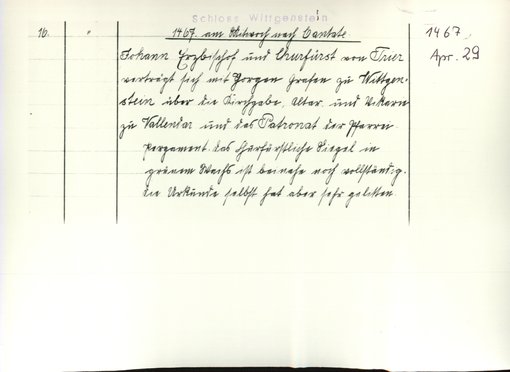 Schloss Wittgenstein
16. " 1467. am Mittwoch nach Cantate 1467
Johann Erzbischof und Churfürst von Trier Apr. 29
verträgt sich mit Jorgen Grafen zu Wittgen-
stein über die Kirchgabe, Altar und Vikarie
zu Vallendar und das Patronat der Pfarrei.
Pergament. das churfürstliche Siegel in
grünem Wachs ist beinahe noch vollständig.
die Urkunde selbst hat aber sehr gelitten.